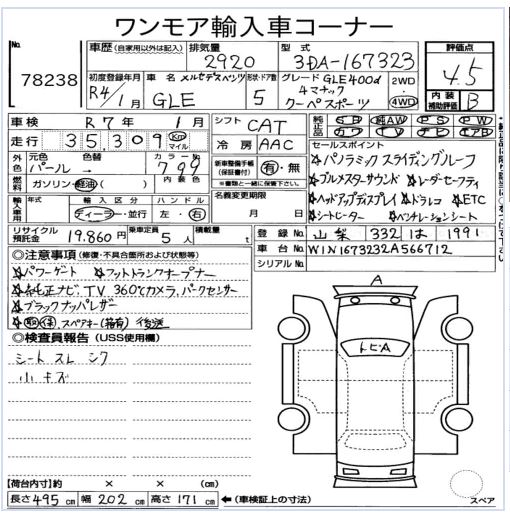 ワンモア輸入車コーナー
78238
車歴 (自家用以外は記入) 排気量 2920 型式 3DA-167323
評価点 4.5
初度登録年月 R4/1月 車名 メルセデスベンツ GLE 形状・ドア数 5 グレード GLE400d 4マチック クーペスポーツ 2WD 4WD
内装補助評価 B
車検 R7年 1月 シフト CAT
純正品 SR 純AW PS PW
カワ TV ナビ エアB
走行 35,309 Km マイル 冷房 AAC
セールスポイント
外色 元色 パール 色替 カラーNo. 799
新車整備手帳(保証書付) 有・無
☆パノラミックスライディングルーフ
燃料 ガソリン・軽油・( ) 内装色
※書類と一緒に保管して下さい。
☆ブルメスターサウンド ☆レーダーセーフティ
輸入車用 年式 輸入区分 ハンドル
名義変更期限
☆ヘッドアップディスプレイ ☆ドラレコ ☆ETC
ディーラー・並行 左・右
月 日
☆シートヒーター ☆ベンチレーションシート
リサイクル預託金 19,860円 乗車定員 5人 積載量 t
登録No. 山梨 332 は 1991
車台No. W1N1673232A566712
シリアルNo.
◎注意事項 (修復・不具合箇所および状態等)
☆パワーゲート ☆フットトランクオープナー
☆純正ナビ,TV 360℃カメラ,パークセンサー
☆ブラックナッパレザー
☆取保,スペアキー(箱有) 後送
◎検査員報告 (USS使用欄)
シート スレ シワ
小キズ
A
トビA
【荷台内寸】約 × × (cm)
長さ 495 cm 幅 202 cm 高さ 171 cm ←(車検証上の寸法)
スペア